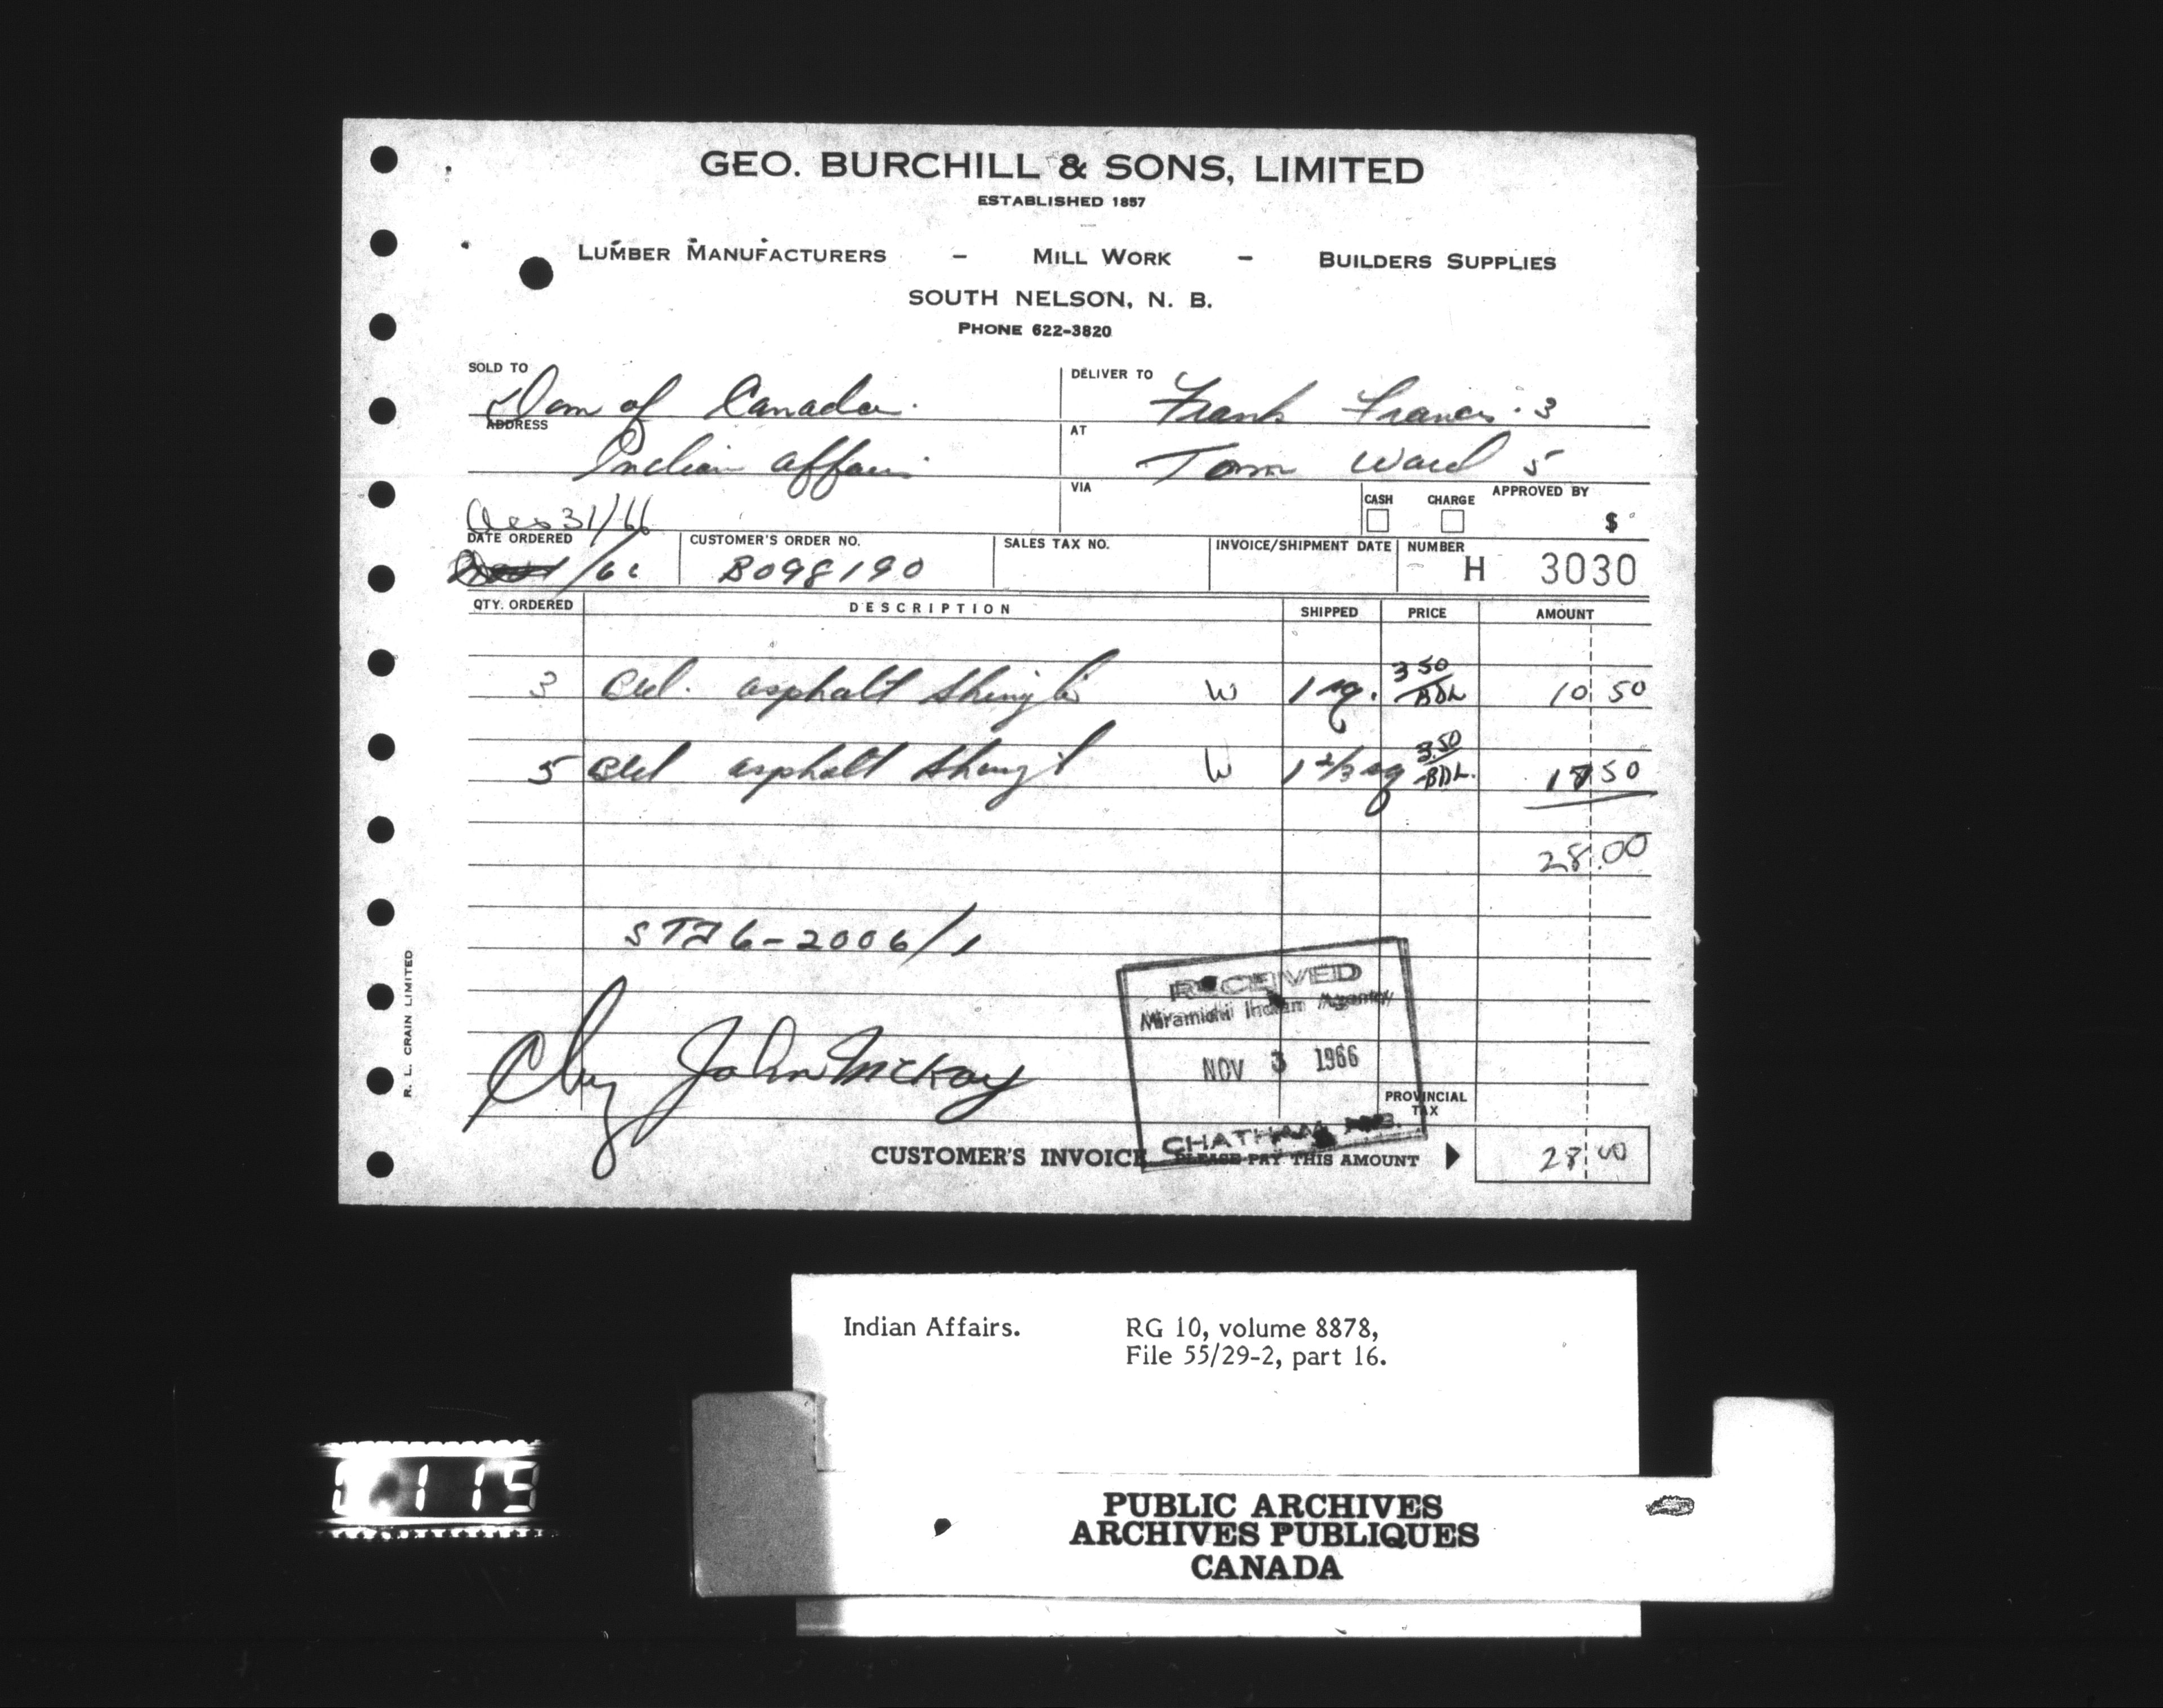 GEO. BURCHILL & SONS, LIMITED
ESTABLISHED 1857
LUMBER MANUFACTURERS – MILL WORK – BUILDERS SUPPLIES
SOUTH NELSON, N. B.
PHONE 622-3820
SOLD TO
Dom of Canada.
DELIVER TO
Frank Francis. 3
ADDRESS
Indian Affairs
AT
Tom Ward 5
VIA
CASH CHARGE APPROVED BY
$
31/66
DATE ORDERED CUSTOMER'S ORDER NO. SALES TAX NO. INVOICE/SHIPMENT DATE NUMBER
/66 B098190 H 3030
QTY. ORDERED DESCRIPTION SHIPPED PRICE AMOUNT
3 asphalt shingle W 1 sq. 3 50/BDL 10 50
5 asphalt shingl W 1 2/3 sq 3.50/BDL. 17 50
28.00
6-2006/1
R. L. CRAIN LIMITED
RECEIVED
Miramichi Indian Agency
NOV 3 1966
CHATHAM N.B.
Chg John McKay
PROVINCIAL TAX
CUSTOMER'S INVOICE PLEASE PAY THIS AMOUNT 28 00
Indian Affairs. RG 10, volume 8878,
File 55/29-2, part 16.
115
PUBLIC ARCHIVES
ARCHIVES PUBLIQUES
CANADA